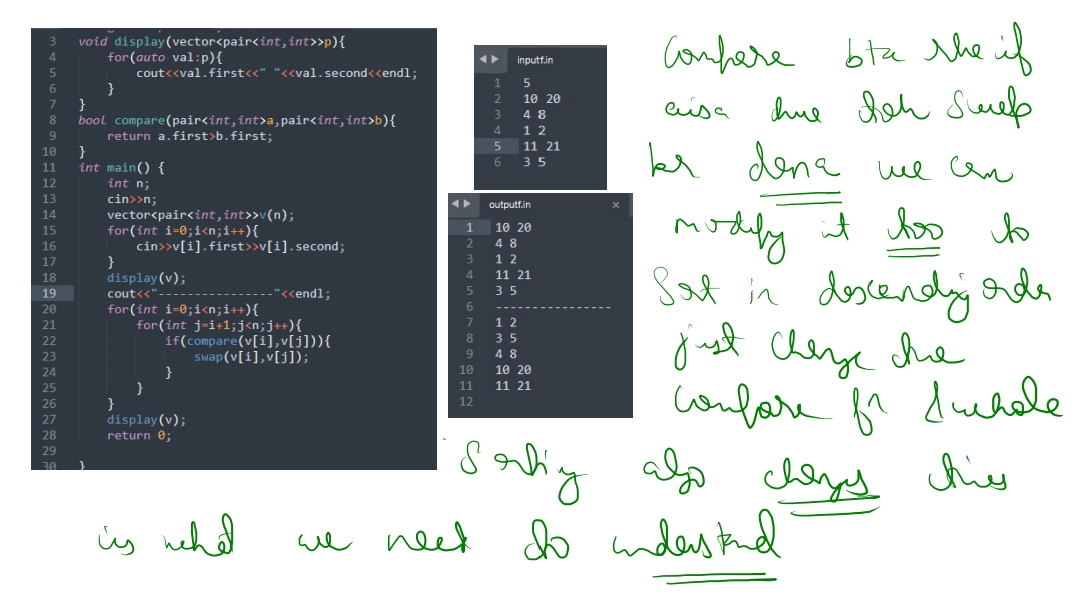 3 void display(vector<pair<int,int>>p){
4 for(auto val:p){
5 cout<<val.first<<" "<<val.second<<endl;
6 }
7 }
8 bool compare(pair<int,int>a,pair<int,int>b){
9 return a.first>b.first;
10 }
11 int main() {
12 int n;
13 cin>>n;
14 vector<pair<int,int>>v(n);
15 for(int i=0;i<n;i++){
16 cin>>v[i].first>>v[i].second;
17 }
18 display(v);
19 cout<<"----------------"<<endl;
20 for(int i=0;i<n;i++){
21 for(int j=i+1;j<n;j++){
22 if(compare(v[i],v[j])){
23 swap(v[i],v[j]);
24 }
25 }
26 }
27 display(v);
28 return 0;
29
30 }
inputf.in
1 5
2 10 20
3 4 8
4 1 2
5 11 21
6 3 5
outputf.in ×
1 10 20
2 4 8
3 1 2
4 11 21
5 3 5
6 ----------------
7 1 2
8 3 5
9 4 8
10 10 20
11 11 21
12
Compare bta rhe if
aisa hue toh swap
kr dena we can
modify it too to
Sort in descending order
just change the
compare fn & whole
Sorting also changes this
is what we need to understand